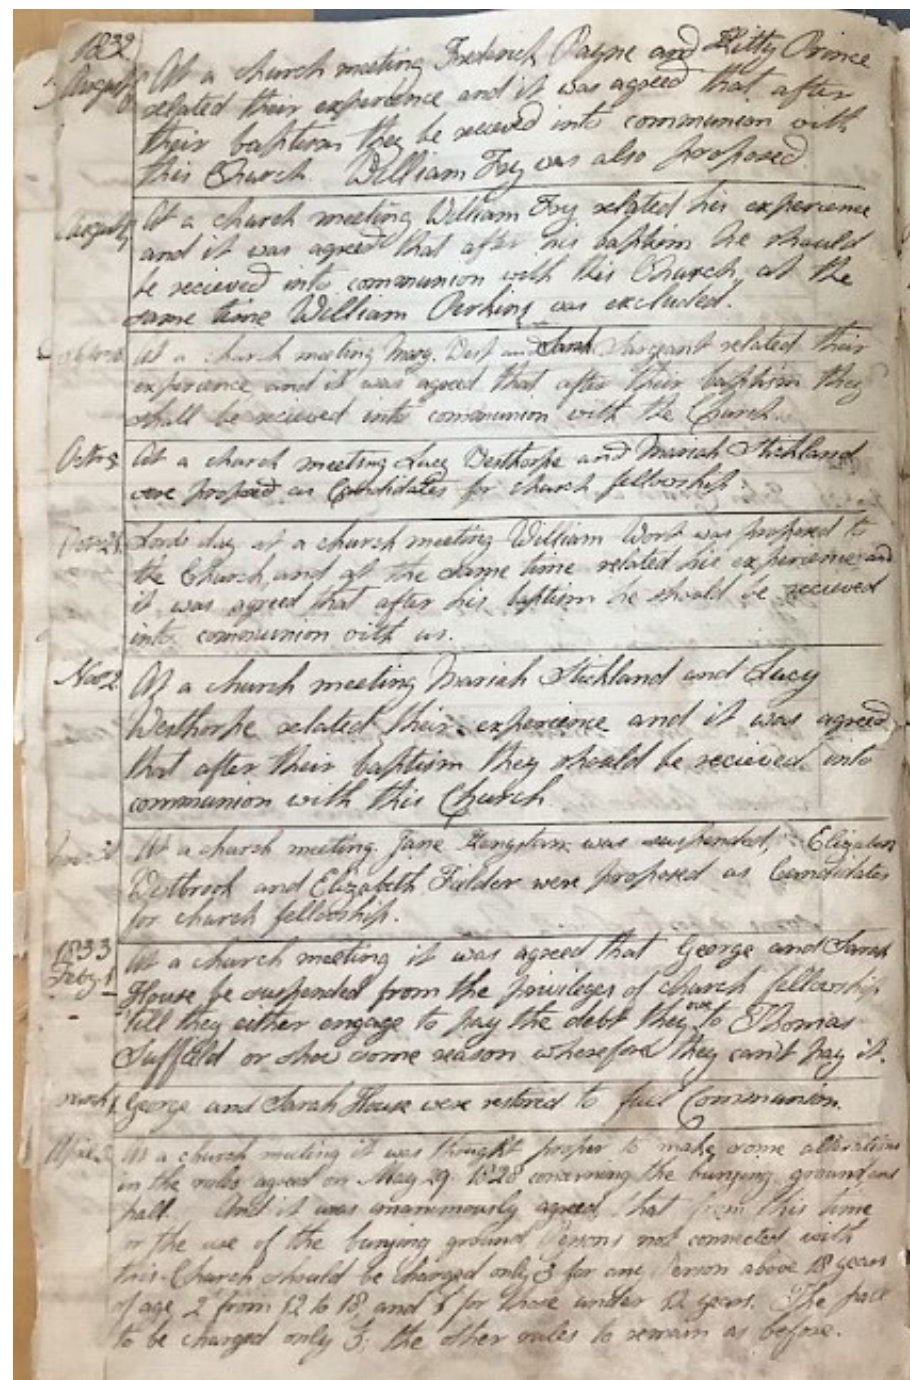 1832
August
At a church meeting Frederick Payne and Kitty Prince
related their experience and it was agreed that after
their baptism they be recieved into communion with
this Church. William Fry was also proposed
August
At a church meeting William Fry related his experience
and it was agreed that after his baptism he should
be recieved into communion with this Church, at the
same time William Perkins was excluded.
At a church meeting Mary and Sarah Sargeant related their
experience and it was agreed that after their baptism they
shall be recieved into communion with the Church.
Octr 5
At a church meeting Lucy Westhorpe and Mariah Stickland
were proposed as Candidates for church fellowship
Lords day at a church meeting William Wort was proposed to
the Church, and at the same time related his experience and
it was agreed that after his baptism he should be recieved
into communion with us.
Nov 2
At a church meeting Mariah Stickland and Lucy
Westhorpe related their experience and it was agreed
that after their baptism they should be recieved into
communion with this Church
At a church meeting Jane was suspended, Elizabeth
Westbrook and Elizabeth Fielder were proposed as Candidates
for church fellowship.
1833
Feby 1
At a church meeting it was agreed that George and Sarah
House be suspended from the privileges of church fellowship
till they either engage to pay the debt they owe to Thomas
Suffield or shew some reason wherefore they can't pay it.
March 1
George and Sarah House were restored to full Communion.
At a church meeting it was thought proper to make some alterations
in the rules agreed on May 29 1828 concerning the burying ground and
pall. And it was unanimously agreed, that from this time
for the use of the burying ground Persons not connected with
this Church should be charged only 3 for any Person above 18 years
of age 2 from 12 to 18, and 1 for those under 12 years. The pall
to be charged only 3; the other rules to remain as before.